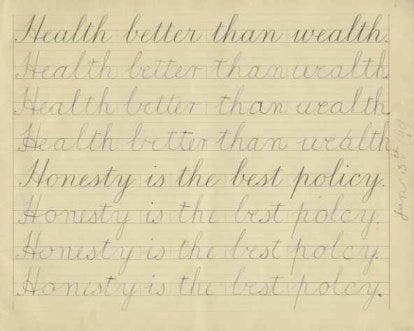 Health better than wealth.
Health better than uealth
Health better than uealth
Health better than uealth
Honesty is the best policy.
Honesty is the best polcy.
Honesty is the best polcy.
Honesty is the best polcy.